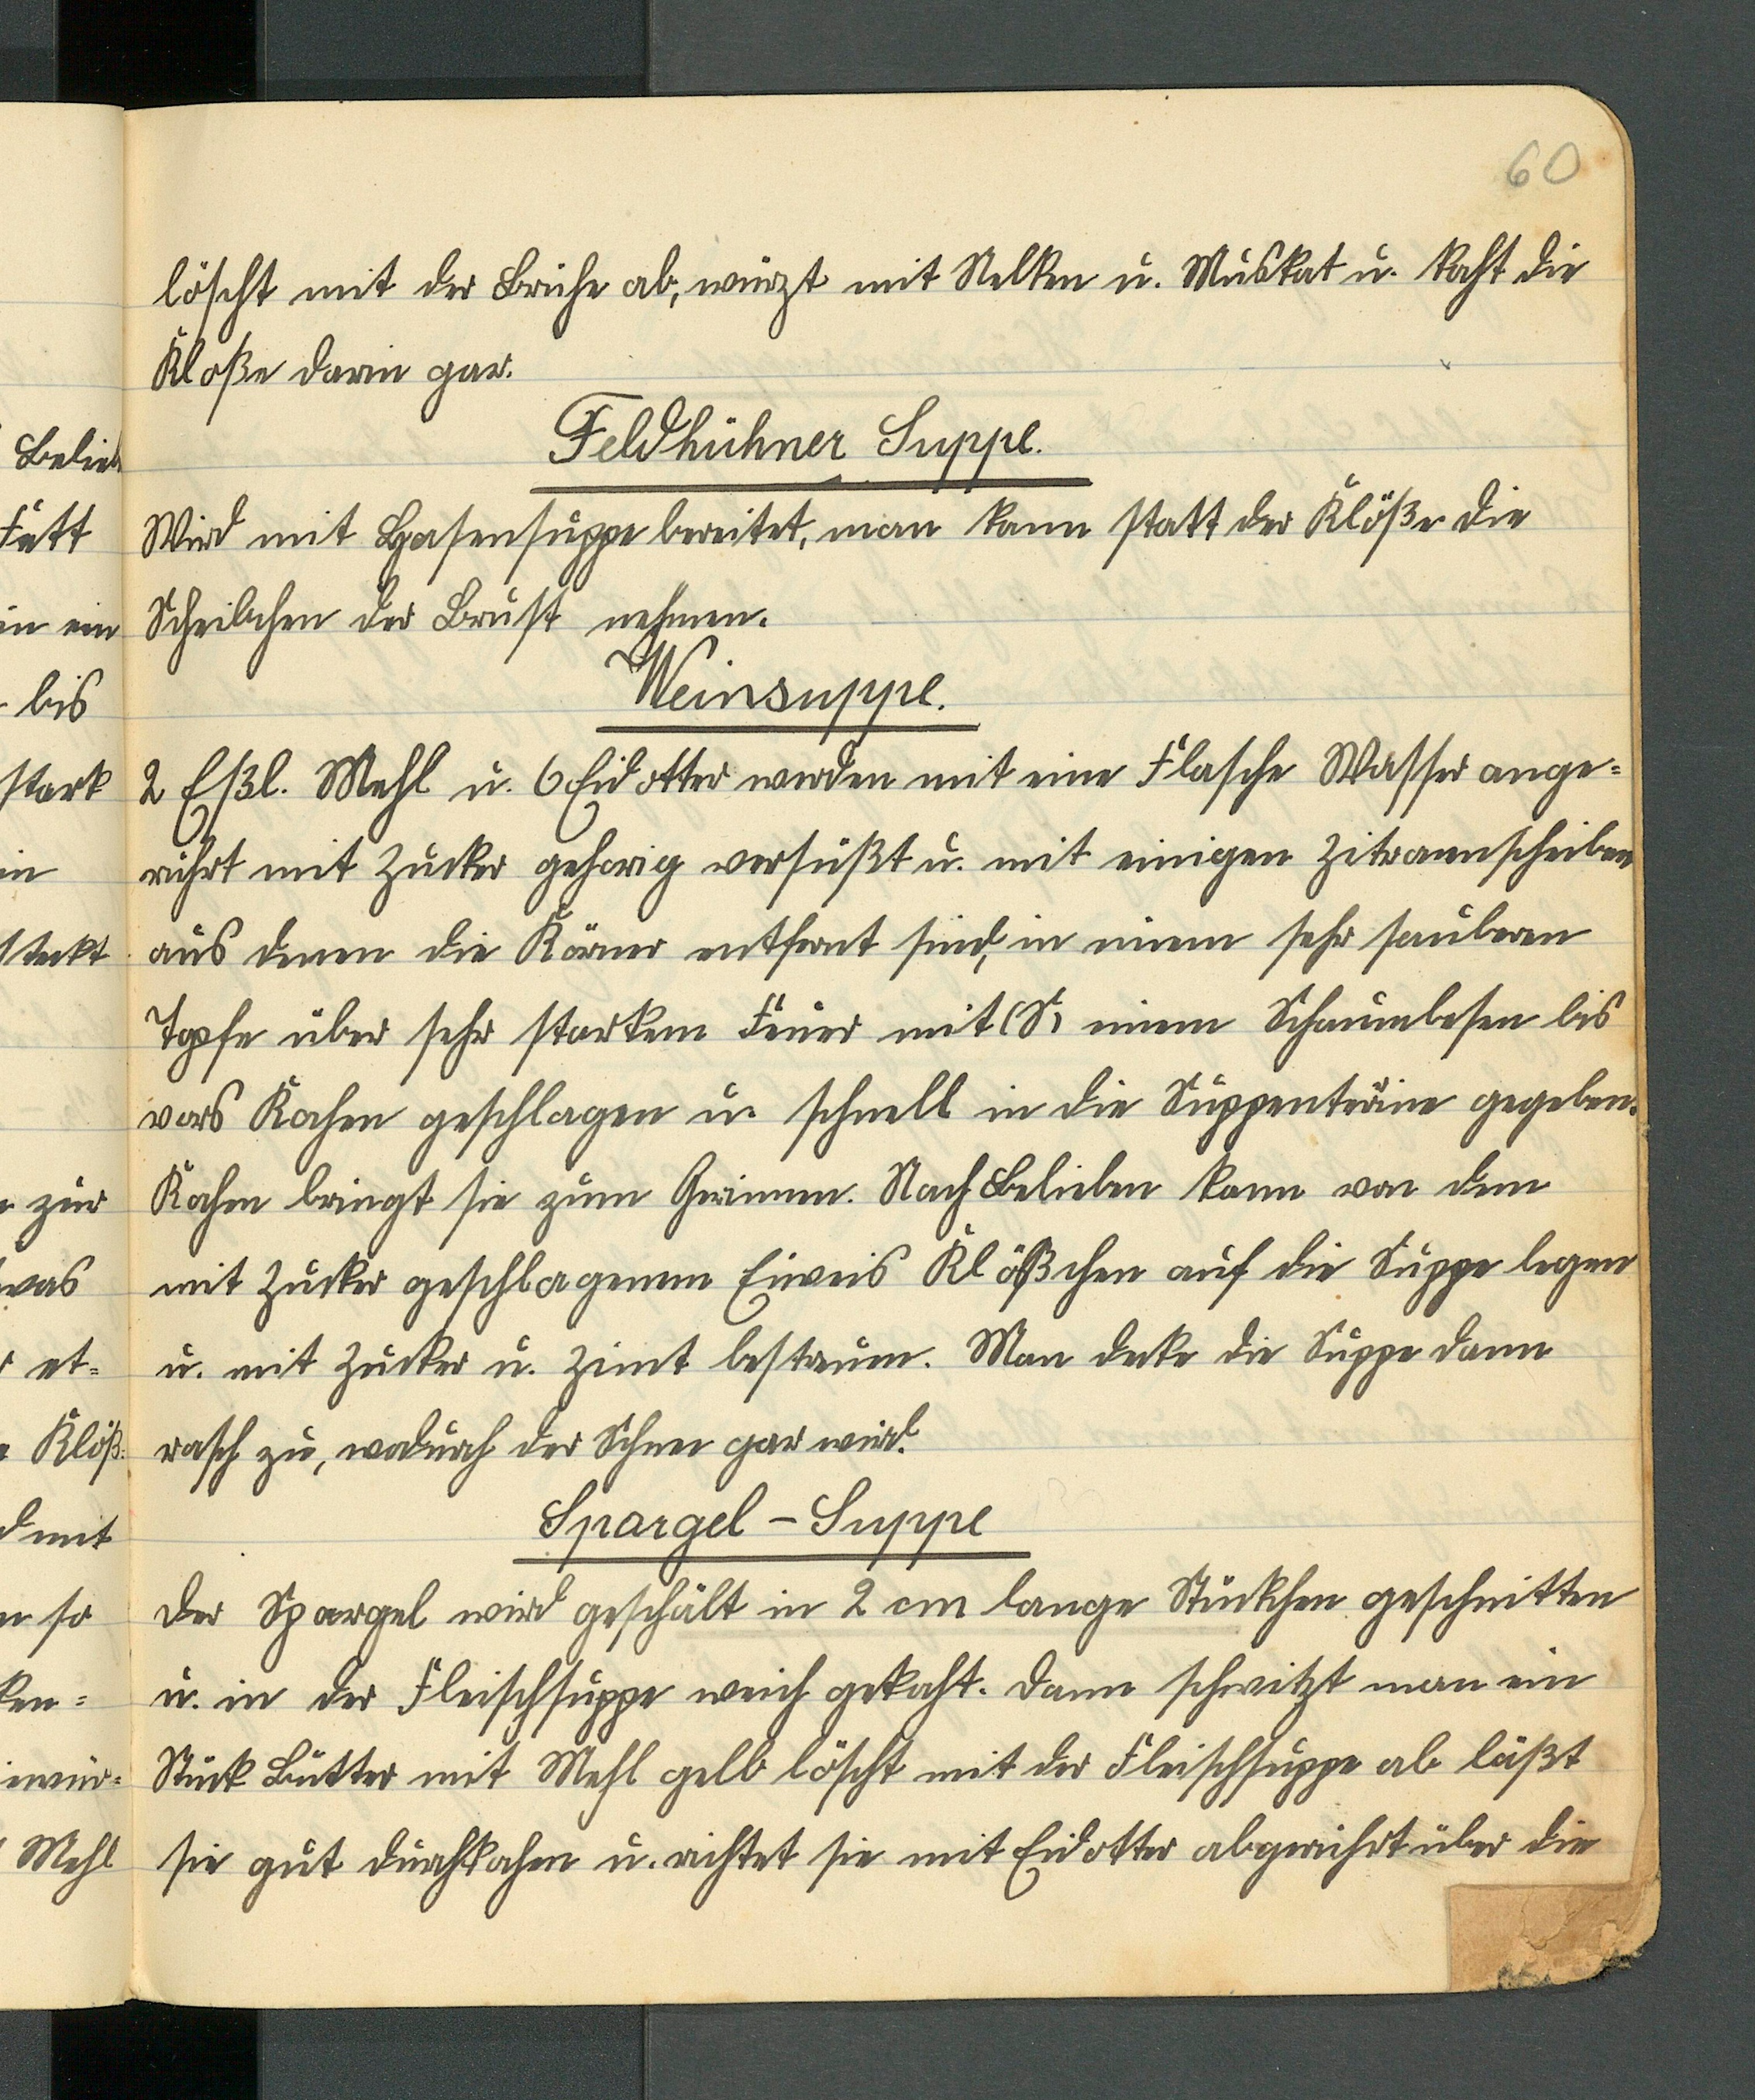 60
löscht mit der Brühe ab, würzt mit Nelken u. Muskat u. kocht die
Kloße darin gar.
Feldhühner Suppe.
Wird mit Hasensuppe bereitet, man kann statt der Klöße die
Scheibchen der Brust nehmen.
Weinsuppe.
2 Eßl. Mehl u. 6 Eidotter werden mit eine Flasche Wasser ange=
rührt mit Zucker gehorig versüßt u. mit einigen Zitronenscheiben
aus denen die Körner entfernt sind, in einem sehr sauberen
Topfe über sehr starkem Feuer mit (S) einem Schaumbesen bis
vors Kochen geschlagen u. schnell in die Suppenterine gegeben.
Kochen bringt sie zum Gerinnen. Nach Belieben kann von dem
mit Zucker geschlagenem Eiweis Klößchen auf die Suppe legen
u. mit Zucker u. Zimt bestreuen. Man decke die Suppe dann
rasch zu, wodurch der Schnee gar wird.
Spargel - Suppe
Der Spargel wird geschält in 2 cm lange Stückchen geschnitten
u. in der Fleischsuppe weich gekocht. Dann schwitzt man ein
Stück Butter mit Mehl gelb löscht mit der Fleischsuppe ab läßt
sie gut durchkochen u. richtet sie mit Eidotter abgerührt über die
Belieb
Fett
in ein
bis
stark
in
steckt
zur
was
et=
Klöß=
mit
so
ken=
Mehl